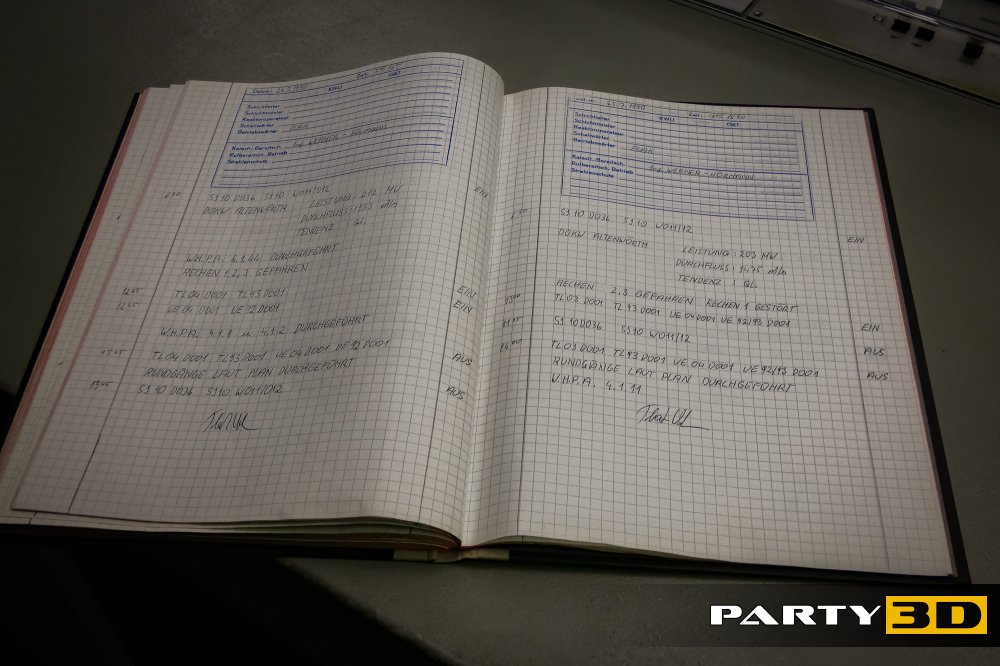 Datum:
Zeit:
KWU
ÖKT
Schichtleiter
Schichtmeister
Reaktoroperateur
Schaltwärter
Betriebswärter PLAN
Katastr. Bereitsch. Ing. WERNER - HÖRMANN
Rufbereitsch. Betrieb
Strahlenschutz
S1 10 D036 S1 10 W011/012 EIN
DOKW ALTENWÖRTH LEISTUNG: 212 MW
DURCHFLUSS: 1555 m³/s
TENDENZ : GL
W.H.P.A. 4.1.44 DURCHGEFÜHRT
RECHEN 1,2,3 GEFAHREN
TL04 D001 TL93 D001 EIN
UE 04 D001 UE 92 D001 EIN
W.H.P.A. 4.1.1 u 4.1.2 DURCHGEFÜHRT
TL04 D001 TL93 D001 UE 04 D001 UE 92 D001 AUS
RUNDGÄNGE LAUT PLAN DURCHGEFÜHRT
S1 10 D036 S1 10 W011/012 AUS
Zeit:
KWU
ÖKT
Schichtleiter
Schichtmeister
Reaktoroperateur
Schaltwärter
Betriebswärter PLAN
Katastr. Bereitsch. Ing. WERNER - HÖRMANN
Rufbereitsch. Betrieb
Strahlenschutz
S1 10 D036 S1 10 W011/12 EIN
DOKW ALTENWÖRTH LEISTUNG: 203 MW
DURCHFLUSS: 1475 m³/s
TENDENZ : GL
RECHEN 2,3 GEFAHREN RECHEN 1 GESTÖRT
TL03 D001 TL 93 D001 UE 04 D001 UE 92/93 D001 EIN
S1 10 D036 S1 10 W011/12 AUS
14 00 TL03 D001 TL93 D001 UE 04 D001 UE 92/93 D001 AUS
RUNDGÄNGE LAUT PLAN DURCHGEFÜHRT
W.H.P.A. 4.1.11
PARTY 3D